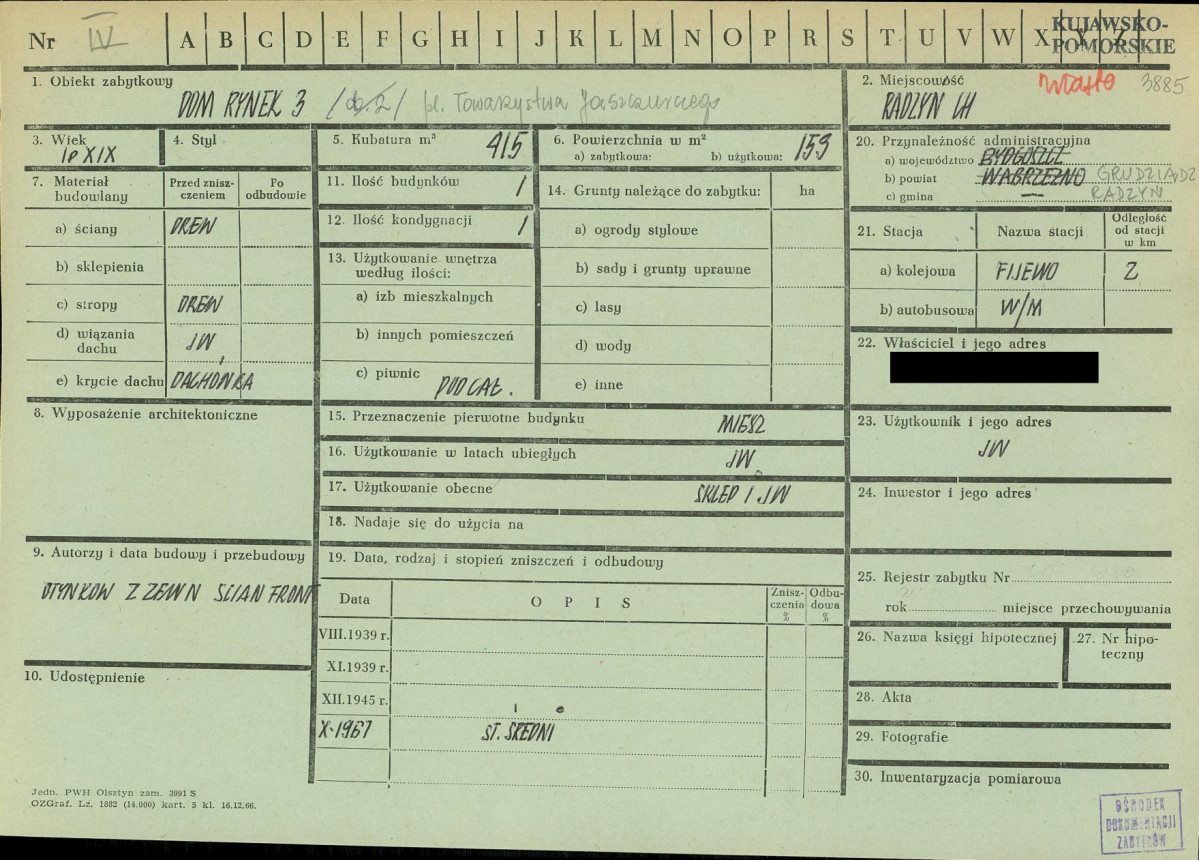 Nr IV A B C D E F G H I J K L M N O P R S T U V W X Y Z
KUJAWSKO-
POMORSKIE
1. Obiekt zabytkowy
DOM RYNEK 3 /d. 2/ pl. Towarzystwa Jaszczurczego
2. Miejscowość miasto 3885
RADZYN CH
3. Wiek
4. Styl
5. Kubatura m³ 415
6. Powierzchnia w m²
a) zabytkowa: b) użytkowa: 159
20. Przynależność administracyjna
a) województwo BYDGOSZCZ
b) powiat WĄBRZEŹNO GRUDZIĄDZ
c) gmina — RADZYN
7. Materiał budowlany
Przed zniszczeniem
Po odbudowie
a) ściany DREW
b) sklepienia
c) stropy DREW
d) wiązania dachu JW
e) krycie dachu DACHÓWKA
11. Ilość budynków 1
12. Ilość kondygnacji 1
13. Użytkowanie wnętrza według ilości:
a) izb mieszkalnych
b) innych pomieszczeń
c) piwnic PODCAŁ.
14. Grunty należące do zabytku: ha
a) ogrody stylowe
b) sady i grunty uprawne
c) lasy
d) wody
e) inne
21. Stacja
Nazwa stacji
Odległość od stacji w km
a) kolejowa FIJEWO 2
b) autobusowa W/M
22. Właściciel i jego adres
8. Wyposażenie architektoniczne
15. Przeznaczenie pierwotne budynku MIESZ
16. Użytkowanie w latach ubiegłych JW
17. Użytkowanie obecne SKLEP I JW
18. Nadaje się do użycia na
23. Użytkownik i jego adres
JW
24. Inwestor i jego adres
9. Autorzy i data budowy i przebudowy
OTYNKOW Z ZEWN ŚCIAN FRONT
19. Data, rodzaj i stopień zniszczeń i odbudowy
Data
OPIS
Zniszczenia %
Odbudowa %
VIII.1939 r.
XI.1939 r.
XII.1945 r.
X-1967 ST. ŚREDNI
10. Udostępnienie
25. Rejestr zabytku Nr
rok miejsce przechowywania
26. Nazwa księgi hipotecznej
27. Nr hipoteczny
28. Akta
29. Fotografie
30. Inwentaryzacja pomiarowa
Jedn. PWH Olsztyn zam. 3991 S
OZGraf. Lz. 1882 (14.000) kart. 5 kl. 16.12.66.
OŚRODEK
DOKUMENTACJI
ZABYTKÓW